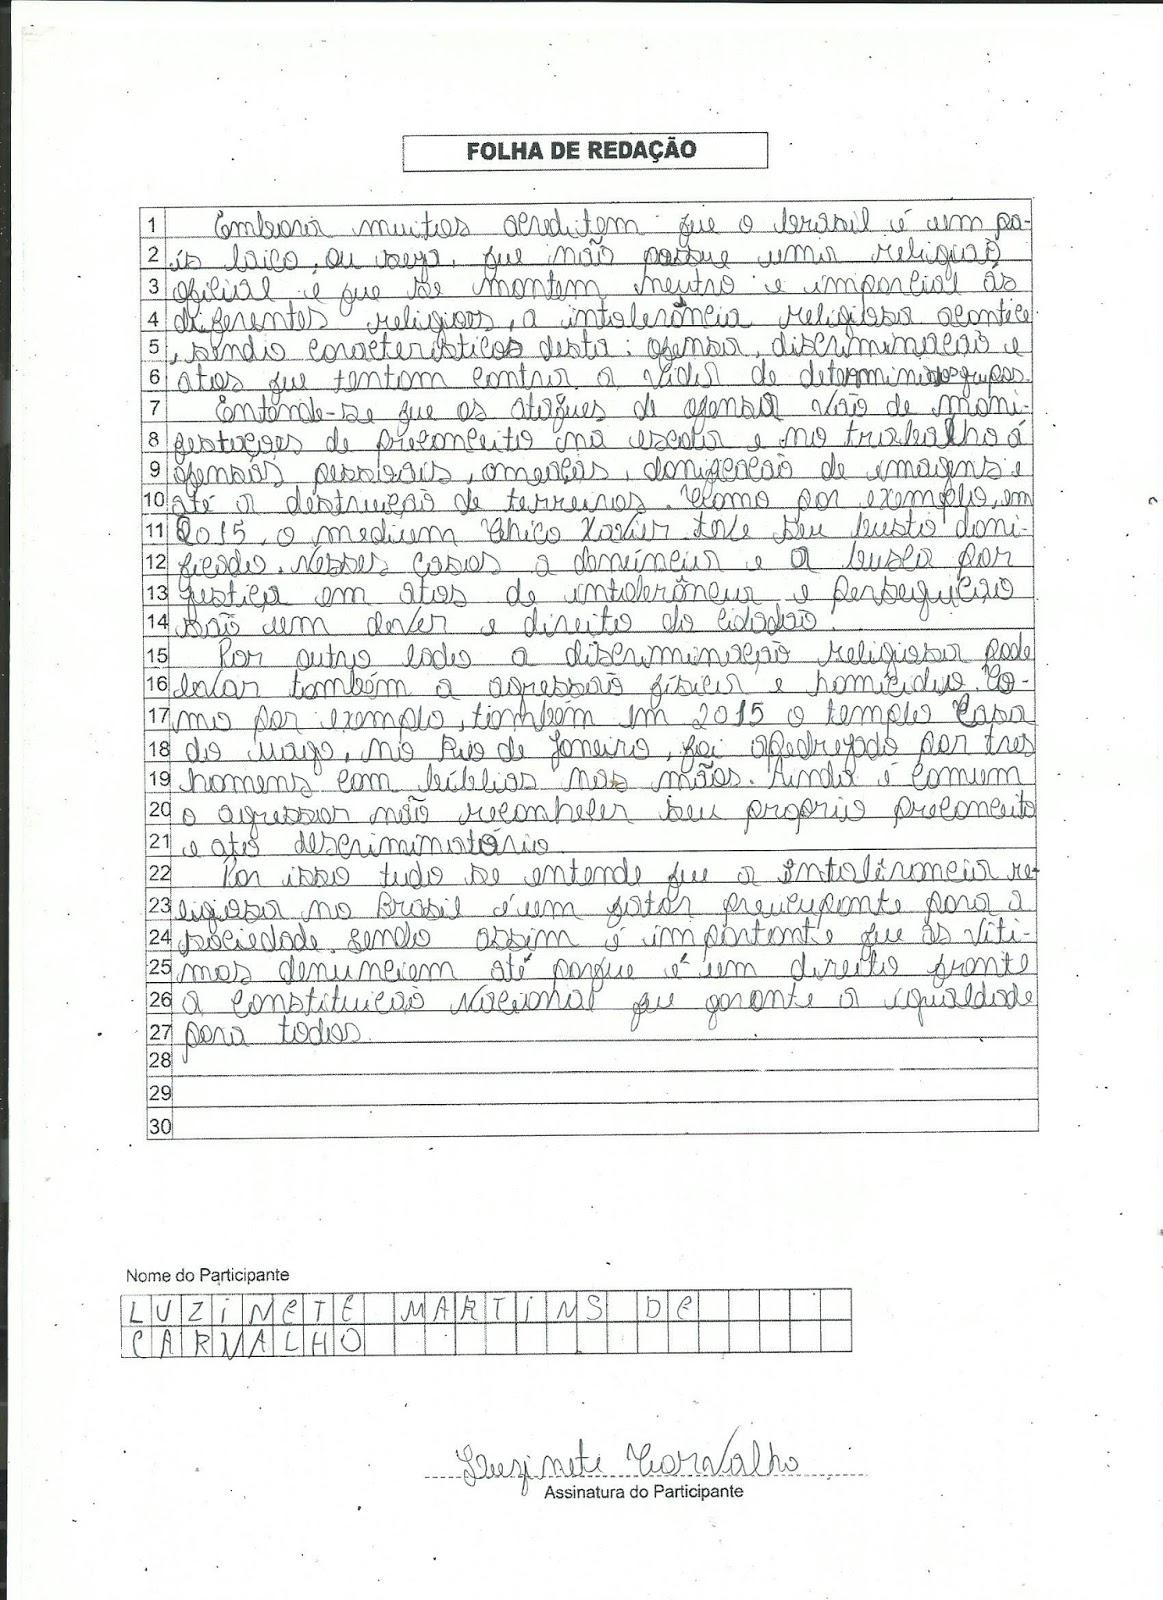 FOLHA DE REDAÇÃO
1 Embora muitos acreditem que o brasil é um pa-
2 ís laico, ou seja, que não possue uma religião
3 oficial e que se mantem neutro e imparcial às
4 diferentes religioes, a intolerância religiosa acontece
5 , sendo caracteristicas desta: ofensa, discriminação e
6 atos que tentam contra a vida de determinados grupos.
7 Entende-se que os ataques de ofensa vão de mani-
8 festações de preconceito na escola e no trabalho à
9 ofensas pessoais, ameaças, danificação de imagens e
10 até a destruição de terreiros. Como por exemplo, em
11 2015, o medium Chico Xavier teve seu busto dani-
12 ficado. Nesses casos a denúncia e a busca por
13 justiça em atos de intolerância e perseguição
14 são um dever e direito do cidadão.
15 Por outro lado a discriminação religiosa pode
16 levar também a agressão física e homicidio. Co-
17 mo por exemplo, também em 2015 o templo Casa
18 do Mago, no Rio de Janeiro, foi apedrejado por tres
19 homens com bíblias nas mãos. Ainda é comum
20 o agressor não reconhecer seu proprio preconceito
21 e ato descriminatório.
22 Por isso tudo se entende que a Intolerancia re-
23 ligiosa no Brasil é um fator preucupante para a
24 sociedade. sendo assim é importante que as víti-
25 mas denunciem até porque é um direito frente
26 a Constituição Nacional que garante a igualdade
27 para todos.
28
29
30
Nome do Participante
LUZINETE MARTINS DE
CARVALHO
Luzinete Carvalho
Assinatura do Participante